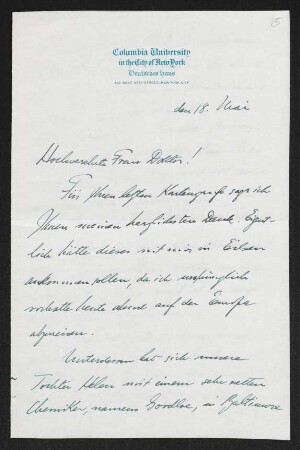 Columbia University
in the City of New York
Deutsches Haus
den 18. Mai
Hochverehrte Frau Doktor!
Für Ihren letzten Kartengruß sage ich
Ihnen meinen herzlichsten Dank. Eigent-
lich hätte dieser mit mir in Eilsen
ankommen sollen, da ich ursprünglich
vorhatte heute abend auf der Europa
abzureisen.
Unterdessen hat sich unsere
Tochter Helen mit einem sehr netten
Chemiker, namens Goodloe, in Baltimore